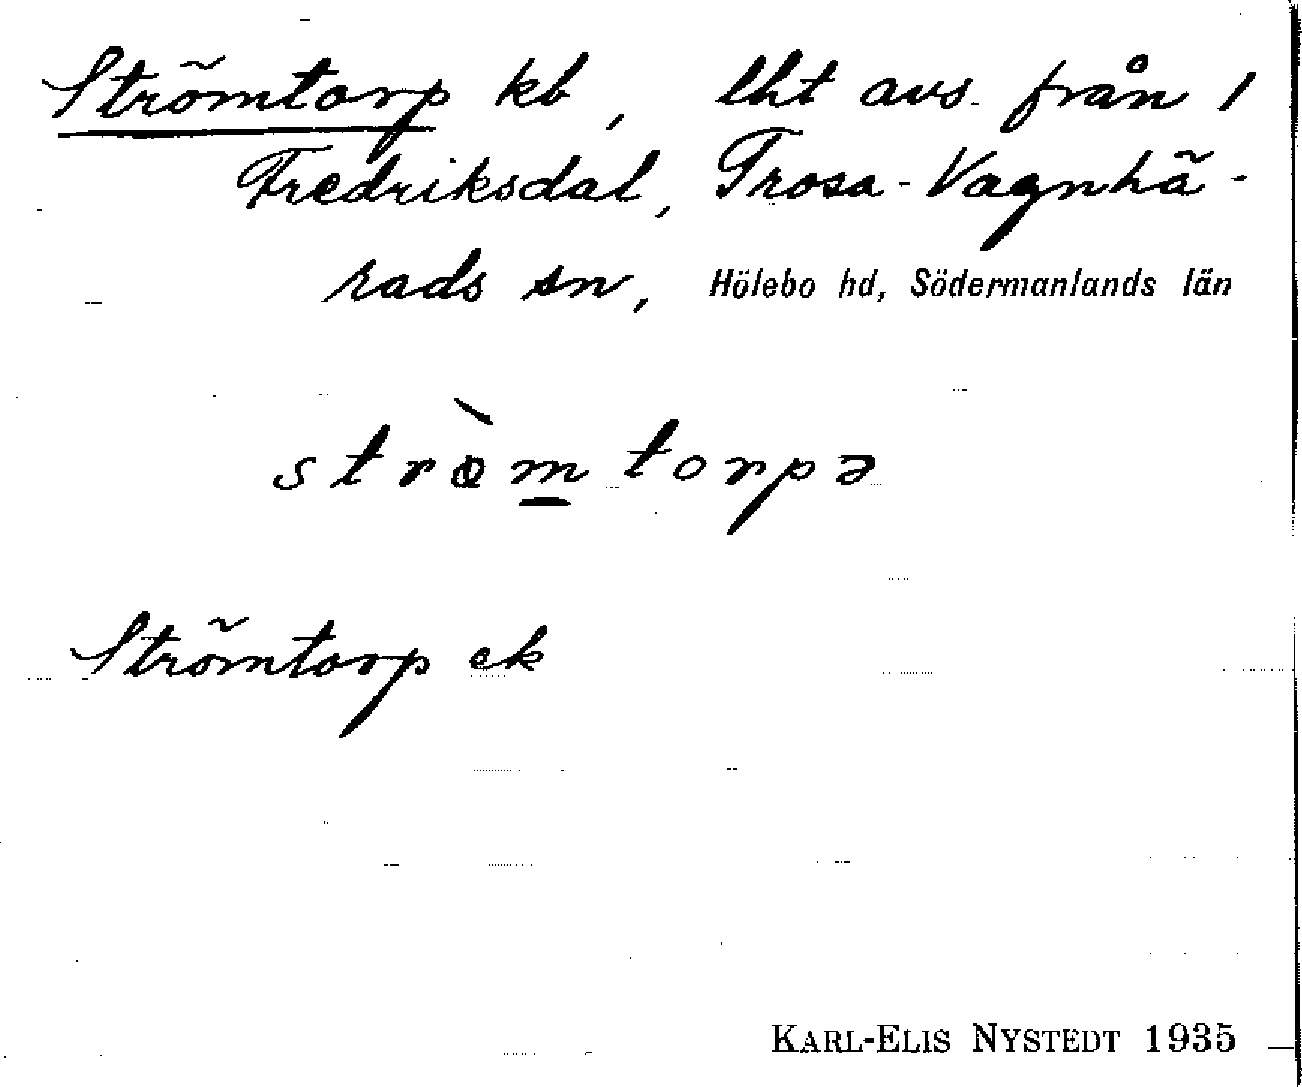 Strömtorp kb, lht avs. från 1
Fredriksdal, Trosa-Vagnhä-
rads sn, Hölebo hd, Södermanlands län
strò̀m torpə
Strömtorp ek
KARL-ELIS NYSTEDT 1935